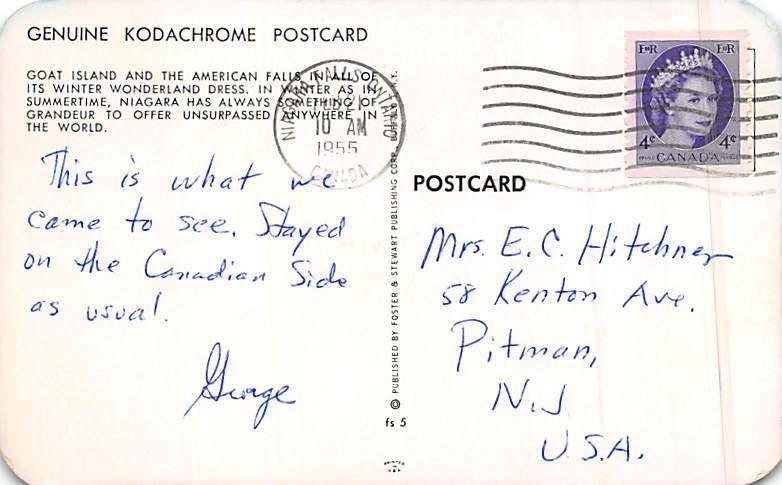 GENUINE KODACHROME POSTCARD
GOAT ISLAND AND THE AMERICAN FALLS IN ALL OF
ITS WINTER WONDERLAND DRESS. IN WINTER AS IN
SUMMERTIME, NIAGARA HAS ALWAYS SOMETHING OF
GRANDEUR TO OFFER UNSURPASSED ANYWHERE IN
THE WORLD.
This is what we
came to see. Stayed
on the Canadian Side
as usual.
George
NIAGARA FALLS ONTARIO
10 AM
1955
CANADA
© PUBLISHED BY FOSTER & STEWART PUBLISHING CORP., N.Y.
fs 5
PRINTED
IN
U.S.A.
EIIR EIIR
4¢ 4¢
CANADA
POSTCARD
Mrs. E.C. Hitchner
58 Kenton Ave.
Pitman,
N.J.
U.S.A.